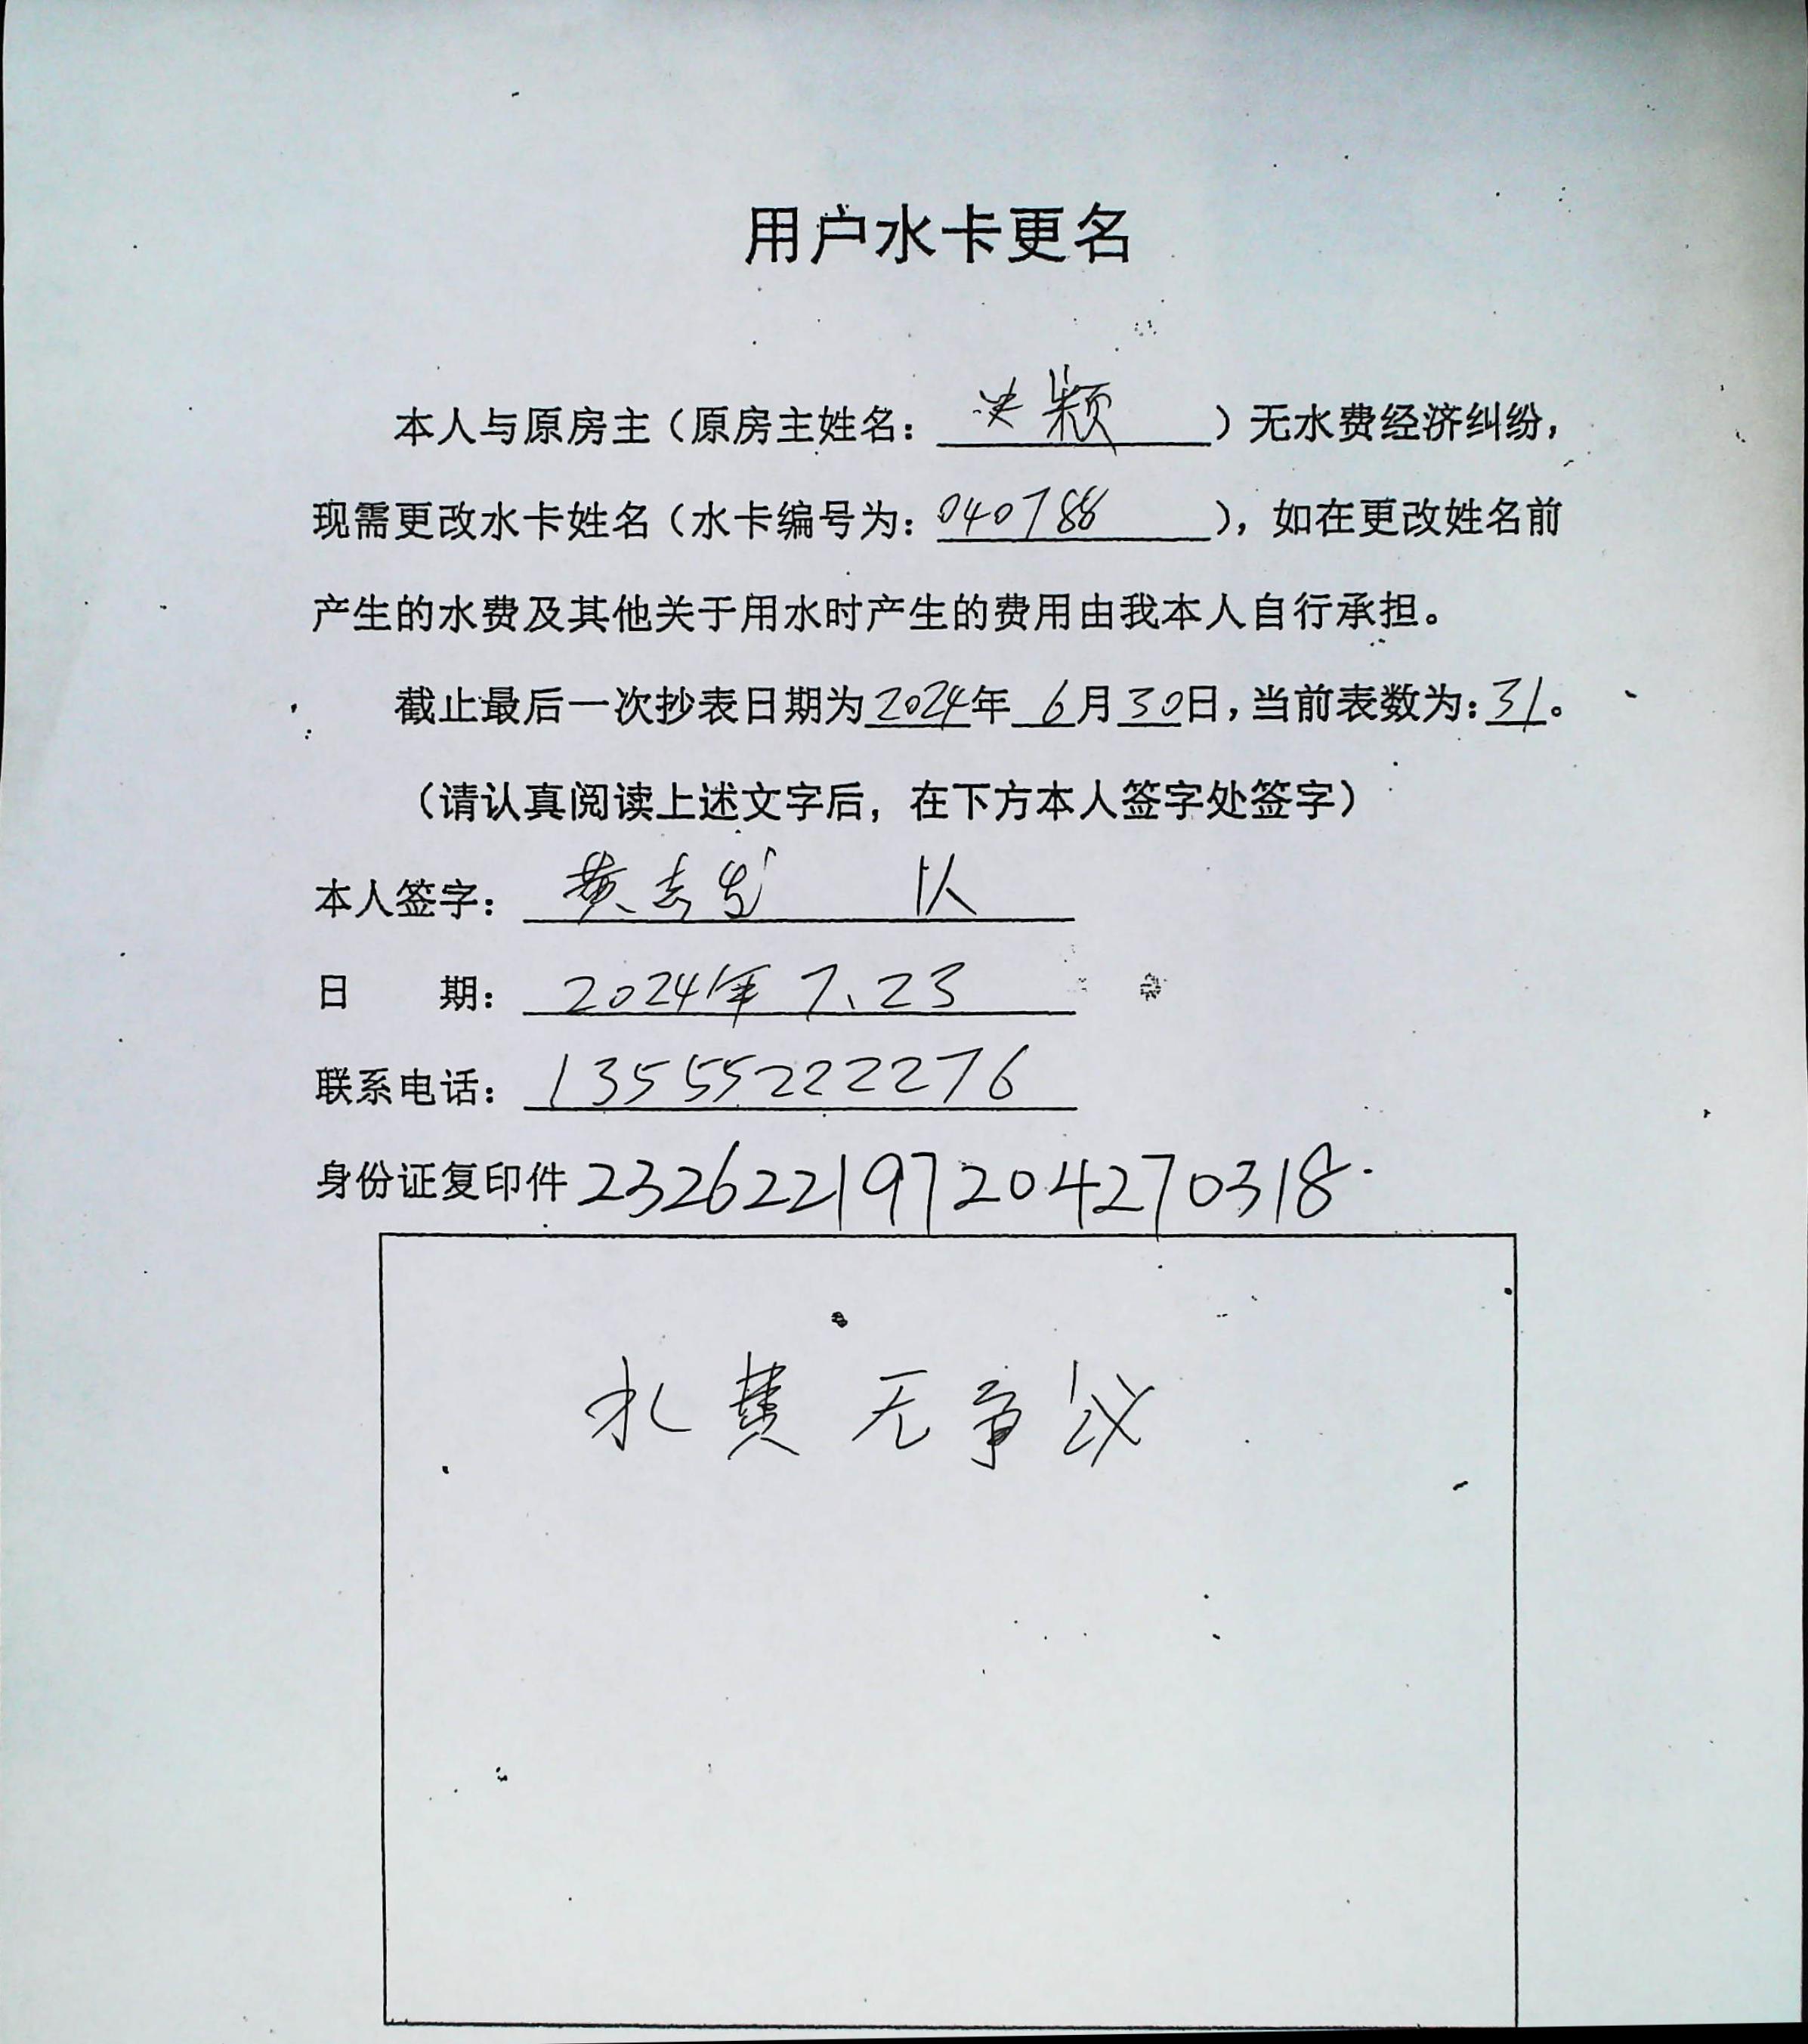 用户水卡更名
本人与原房主（原房主姓名：颖）无水费经济纠纷，
现需更改水卡姓名（水卡编号为：040788），如在更改姓名前
产生的水费及其他关于用水时产生的费用由我本人自行承担。
截止最后一次抄表日期为2024年6月30日，当前表数为：31。
（请认真阅读上述文字后，在下方本人签字处签字）
本人签字：黄 1人
日 期：2024年7、23
联系电话：13555222276
身份证复印件 232622197204270318.
水费无争议